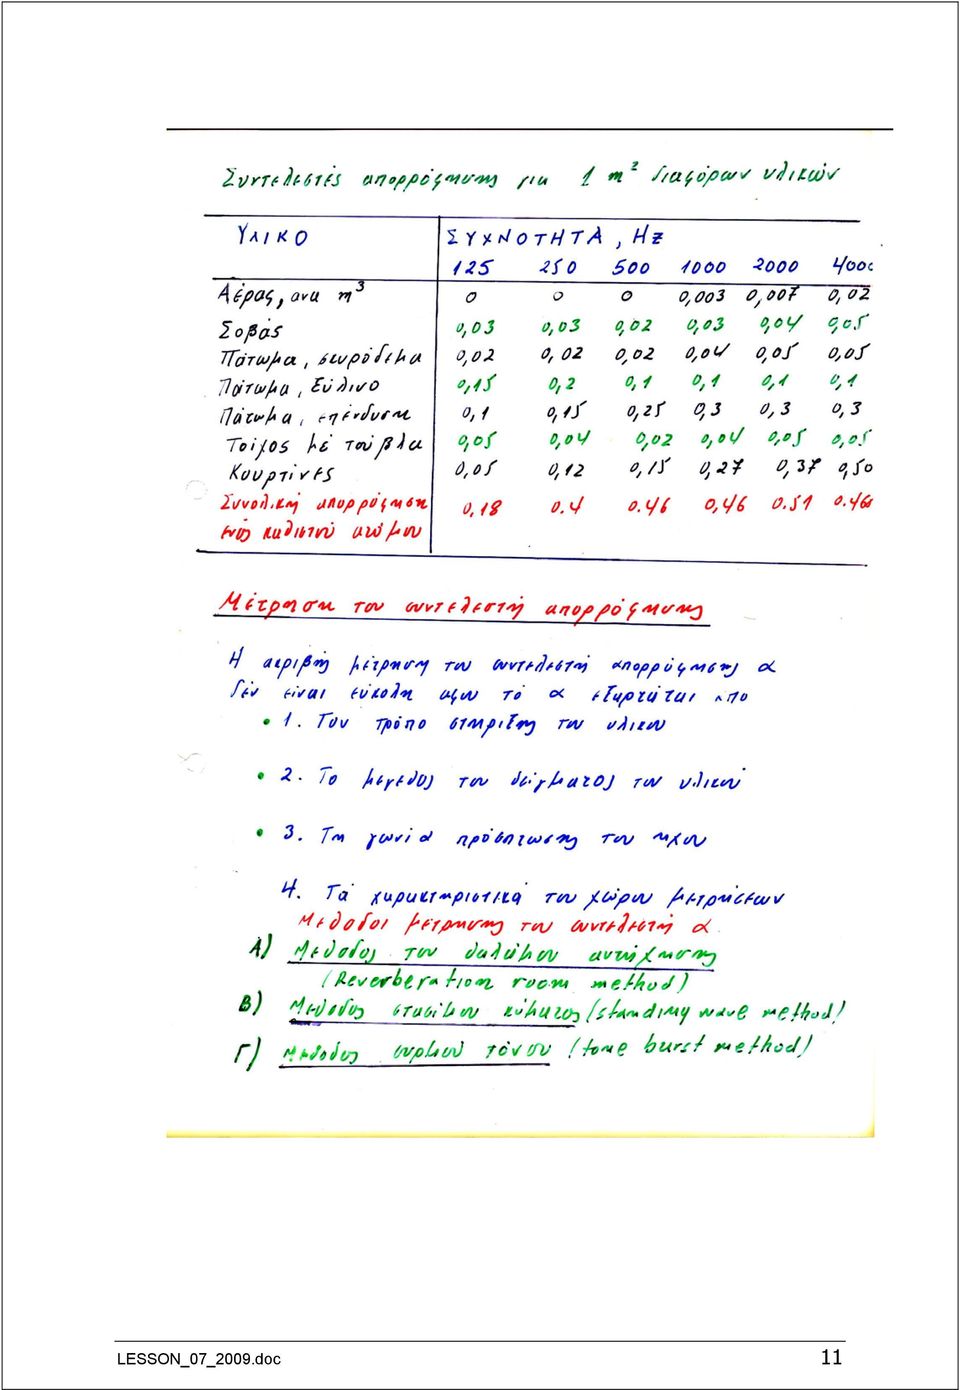 Συντελεστές απορρόφησης για 1 m² διαφόρων υλικών
ΥΛΙΚΟ ΣΥΧΝΟΤΗΤΑ, Hz
125 250 500 1000 2000 4000
Αέρας, ανα m³ 0 0 0 0,003 0,007 0,02
Σοβάς 0,03 0,03 0,02 0,03 0,04 0,05
Πάτωμα, σκυρόδεμα 0,02 0,02 0,02 0,04 0,05 0,05
Πάτωμα, ξύλινο 0,15 0,2 0,1 0,1 0,1 0,1
Πάτωμα, επένδυση 0,1 0,15 0,25 0,3 0,3 0,3
Τοίχος μέ τούβλα 0,05 0,04 0,02 0,04 0,05 0,05
Κουρτίνες 0,05 0,12 0,15 0,27 0,37 0,50
Συνολική απορρόφηση 0,18 0.4 0.46 0,46 0.51 0.46
ενός καθιστού ατόμου
Μέτρηση του συντελεστή απορρόφησης
Η ακριβής μέτρηση του συντελεστή απορρόφησης α
δέν είναι εύκολη αφου τό α εξαρτάται απο
• 1. Τον τρόπο στηριξης του υλικου
• 2. Το μεγεθος του δείγματος του υλικού
• 3. Τη γωνία πρόσπτωσης του ηχου
4. Τά χαρακτηριστικά του χώρου μετρήσεων
Μεθοδοι μέτρησης του συντελεστή α
Α) Μεθοδος του θαλάμου αντήχησης
(Reverberation room method)
Β) Μεθοδος στασίμου κύματος (standing wave method)
Γ) Μεθοδος συρμού τόνου (tone burst method)
LESSON_07_2009.doc 11